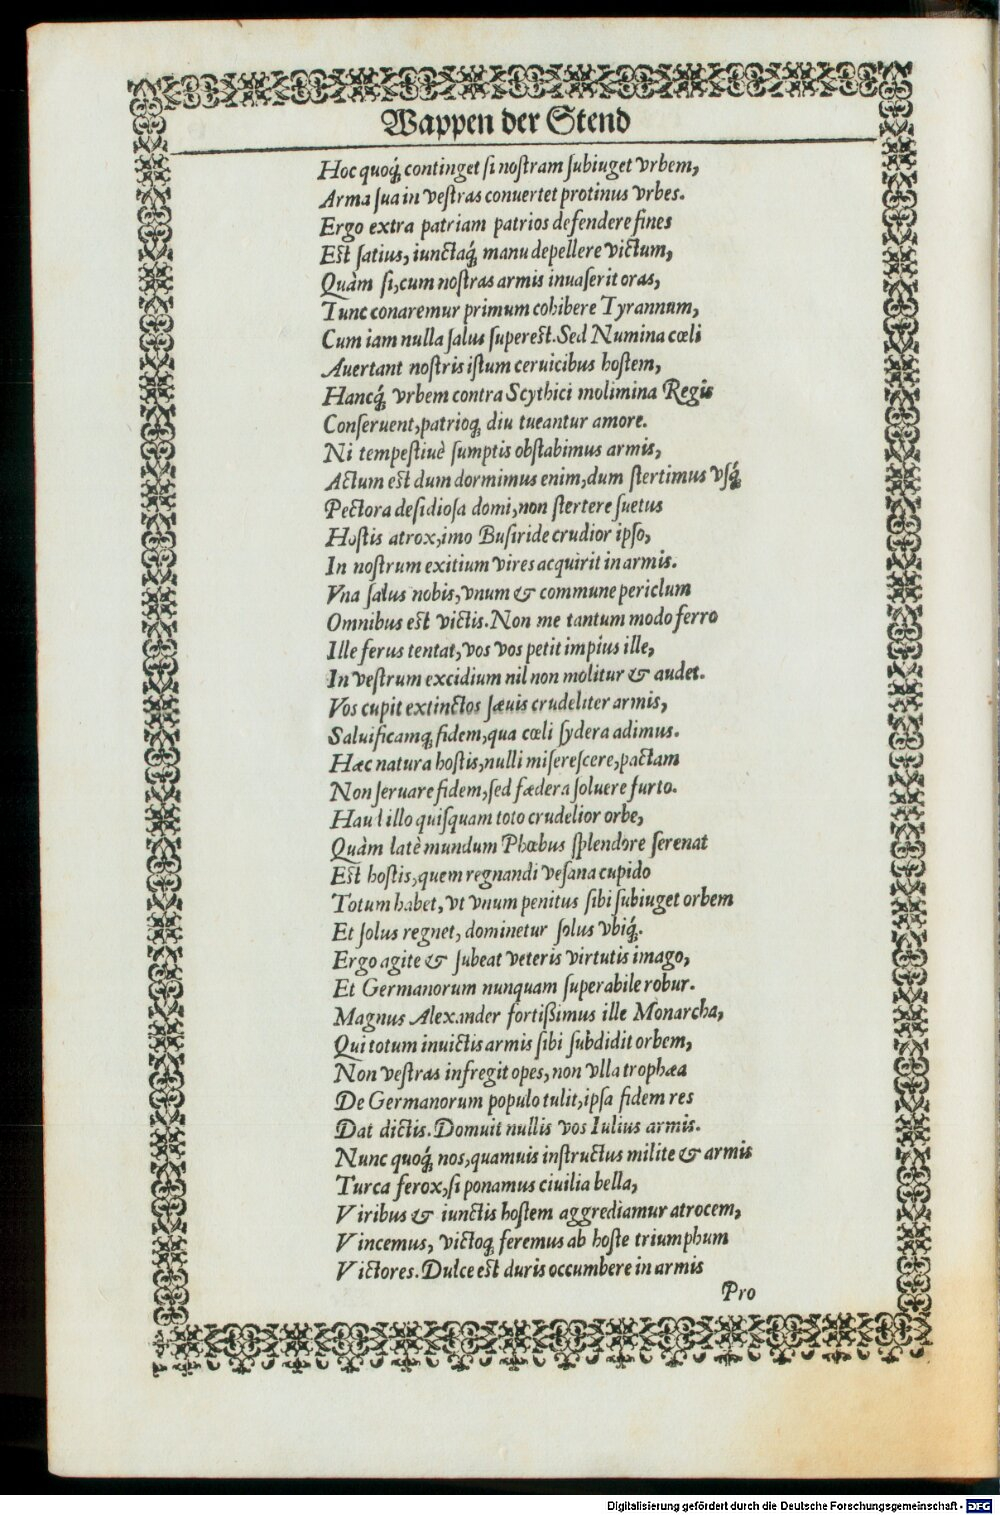 Wappen der Stend
Hoc quoq́; continget si nostram subiuget vrbem,
Arma sua in vestras conuertet protinus vrbes.
Ergo extra patriam patrios defendere fines
Est satius, iunctaq́; manu depellere victum,
Quàm si, cum nostras armis inuaserit oras,
Tunc conaremur primum cohibere Tyrannum,
Cum iam nulla salus superest. Sed Numina cœli
Auertant nostris istum ceruicibus hostem,
Hancq́; vrbem contra Scythici molimina Regis
Conseruent, patrioq; diu tueantur amore.
Ni tempestiuè sumptis obstabimus armis,
Actum est dum dormimus enim, dum stertimus vsq́;
Pectora desidiosa domi, non stertere suetus
Hostis atrox, imo Busiride crudior ipso,
In nostrum exitium vires acquirit in armis.
Vna salus nobis, vnum & commune periclum
Omnibus est victis. Non me tantum modo ferro
Ille ferus tentat, vos vos petit impius ille,
In vestrum excidium nil non molitur & audet.
Vos cupit extinctos sæuis crudeliter armis,
Saluificamq; fidem, qua cœli sydera adimus.
Hæc natura hostis, nulli miserescere, pactam
Non seruare fidem, sed fædera soluere furto.
Haud illo quisquam toto crudelior orbe,
Quàm latè mundum Phœbus splendore serenat
Est hostis, quem regnandi vesana cupido
Totum habet, vt vnum penitus sibi subiuget orbem
Et solus regnet, dominetur solus vbiq́;.
Ergo agite & subeat veteris virtutis imago,
Et Germanorum nunquam superabile robur.
Magnus Alexander fortißimus ille Monarcha,
Qui totum inuictis armis sibi subdidit orbem,
Non vestras infregit opes, non vlla trophæa
De Germanorum populo tulit, ipsa fidem res
Dat dictis. Domuit nullis vos Iulius armis.
Nunc quoq́; nos, quamuis instructus milite & armis
Turca ferox, si ponamus ciuilia bella,
Viribus & iunctis hostem aggrediamur atrocem,
Vincemus, victoq; feremus ab hoste triumphum
Victores. Dulce est duris occumbere in armis
Pro
Digitalisierung gefördert durch die Deutsche Forschungsgemeinschaft - DFG